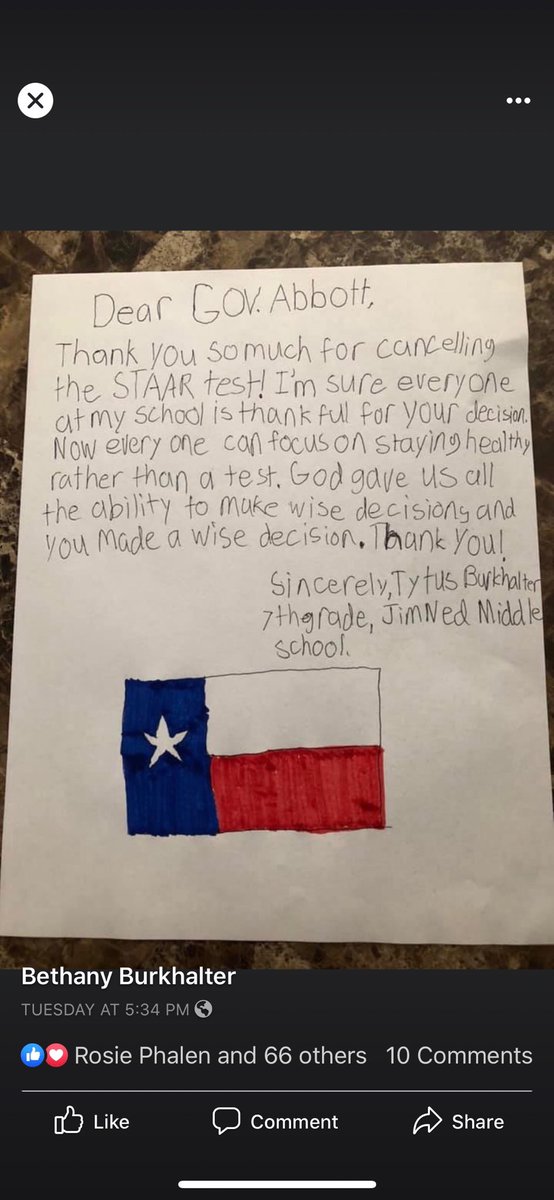 Dear Gov. Abbott,
Thank you so much for cancelling
the STAAR test! I'm sure everyone
at my school is thankful for your decision.
Now every one can focus on staying healthy
rather than a test. God gave us all
the ability to make wise decisions and
you made a wise decision. Thank you!
Sincerely, Tytus Burkhalter
7th grade, Jim Ned Middle
school.
Bethany Burkhalter
TUESDAY AT 5:34 PM
Rosie Phalen and 66 others 10 Comments
Like Comment Share